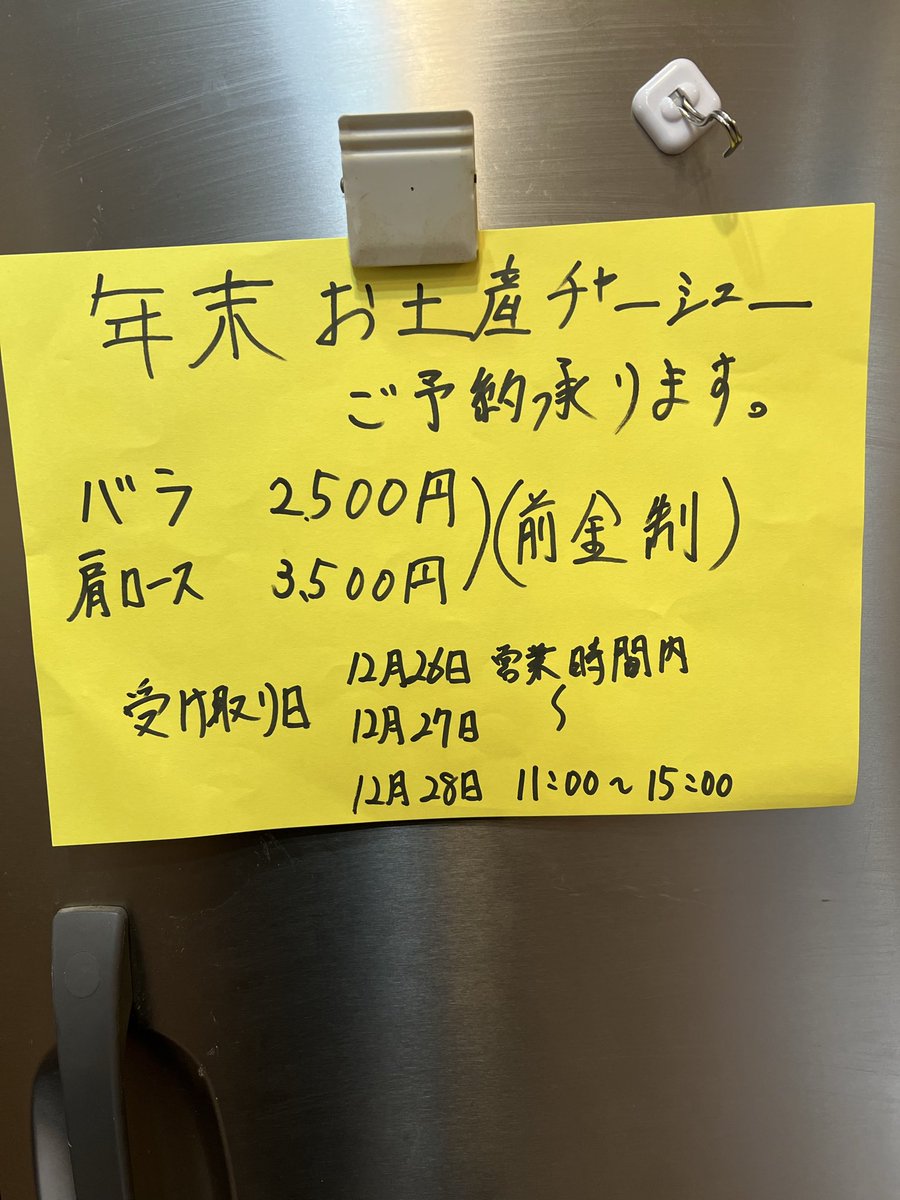 年末 お土産チャーシュー
ご予約承ります。
バラ 2,500円
肩ロース 3,500円
(前金制)
受け取り日
12月26日 営業時間内
12月27日 〜
12月28日 11:00〜15:00